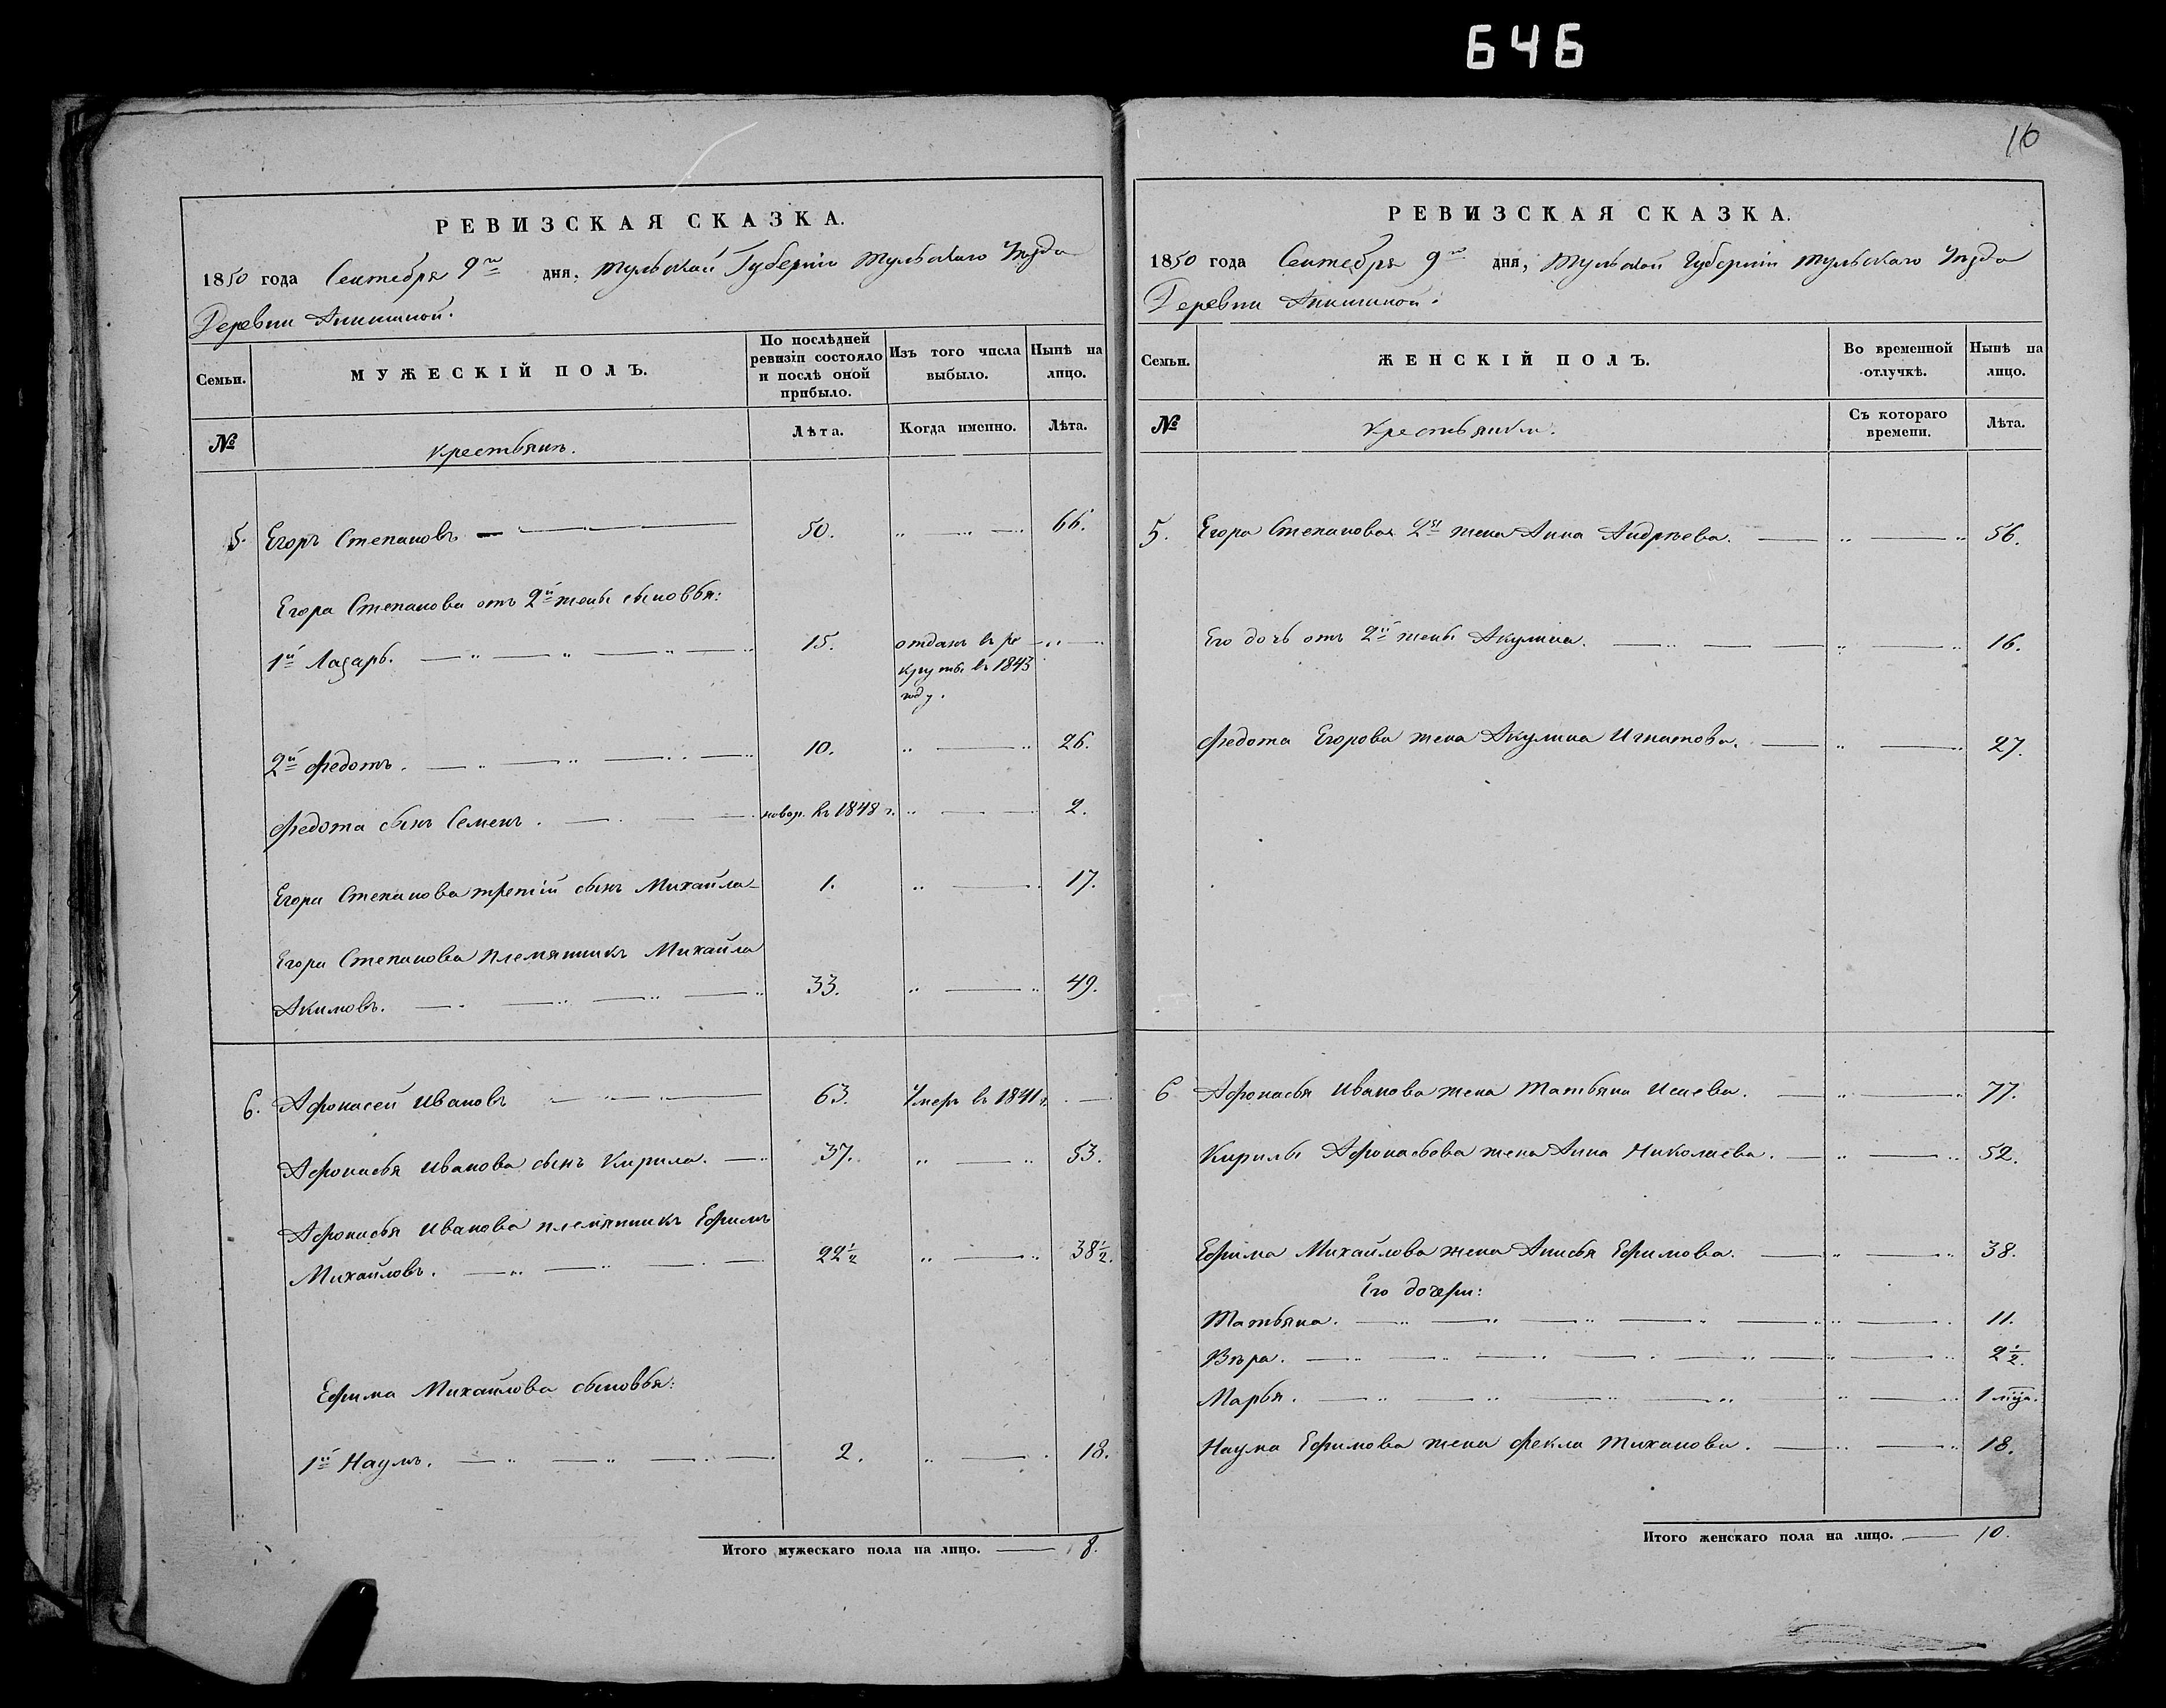 646
РЕВИЗСКАЯ СКАЗКА.
1850 года Сентября 9го дня, Тульской Губернiи Тульскаго Уѣзда
Деревни Аникиной.
Семьи.
МУЖЕСКІЙ ПОЛЪ.
По послѣдней ревизіи состояло и послѣ оной прибыло.
Изъ того числа выбыло.
Нынѣ на лицо.
№
крестьянъ.
Лѣта.
Когда именно.
Лѣта.
5. Егоръ Степановъ 50. 66.
Егора Степанова отъ 2й жены сыновья:
1й Лазарь. 15. отданъ въ ре
круты въ 1843
году.
2й Федотъ. 10. 26.
Федота сынъ Семенъ. новор. въ 1848 г. 2.
Егора Степанова третій сынъ Михайла 1. 17.
Егора Степанова племянникъ Михайла
Акимовъ. 33. 49.
6. Афонасей Ивановъ 63. Умеръ въ 1841 г.
Афонасья Иванова сынъ Кирила. 37. 53.
Афонасья Иванова племянникъ Ефимъ
Михайловъ. 22½ 38½.
Ефима Михайлова сыновья:
1й Наумъ. 2. 18.
Итого мужескаго пола на лицо. 8.
16
РЕВИЗСКАЯ СКАЗКА.
1850 года Сентября 9го дня, Тульской Губерніи Тульскаго Уѣзда
Деревни Аникиной.
Семьи.
ЖЕНСКІЙ ПОЛЪ.
Во временной отлучкѣ.
Нынѣ на лицо.
№
крестьянки.
Съ котораго времени.
Лѣта.
5. Егора Степанова 2я жена Анна Андрѣева. 56.
Его дочь отъ 2й жены Акулина. 16.
Федота Егорова жена Акулина Игнатова. 27.
6 Афонасья Иванова жена Татьяна Исаева. 77.
Кирилы Афонасьева жена Анна Николаева. 52.
Ефима Михайлова жена Анисья Ефимова. 38.
Его дочери:
Татьяна. 11.
Вѣра. 2½.
Марья. 1 мца.
Наума Ефимова жена Фекла Тиханова. 18.
Итого женскаго пола на лицо. 10.